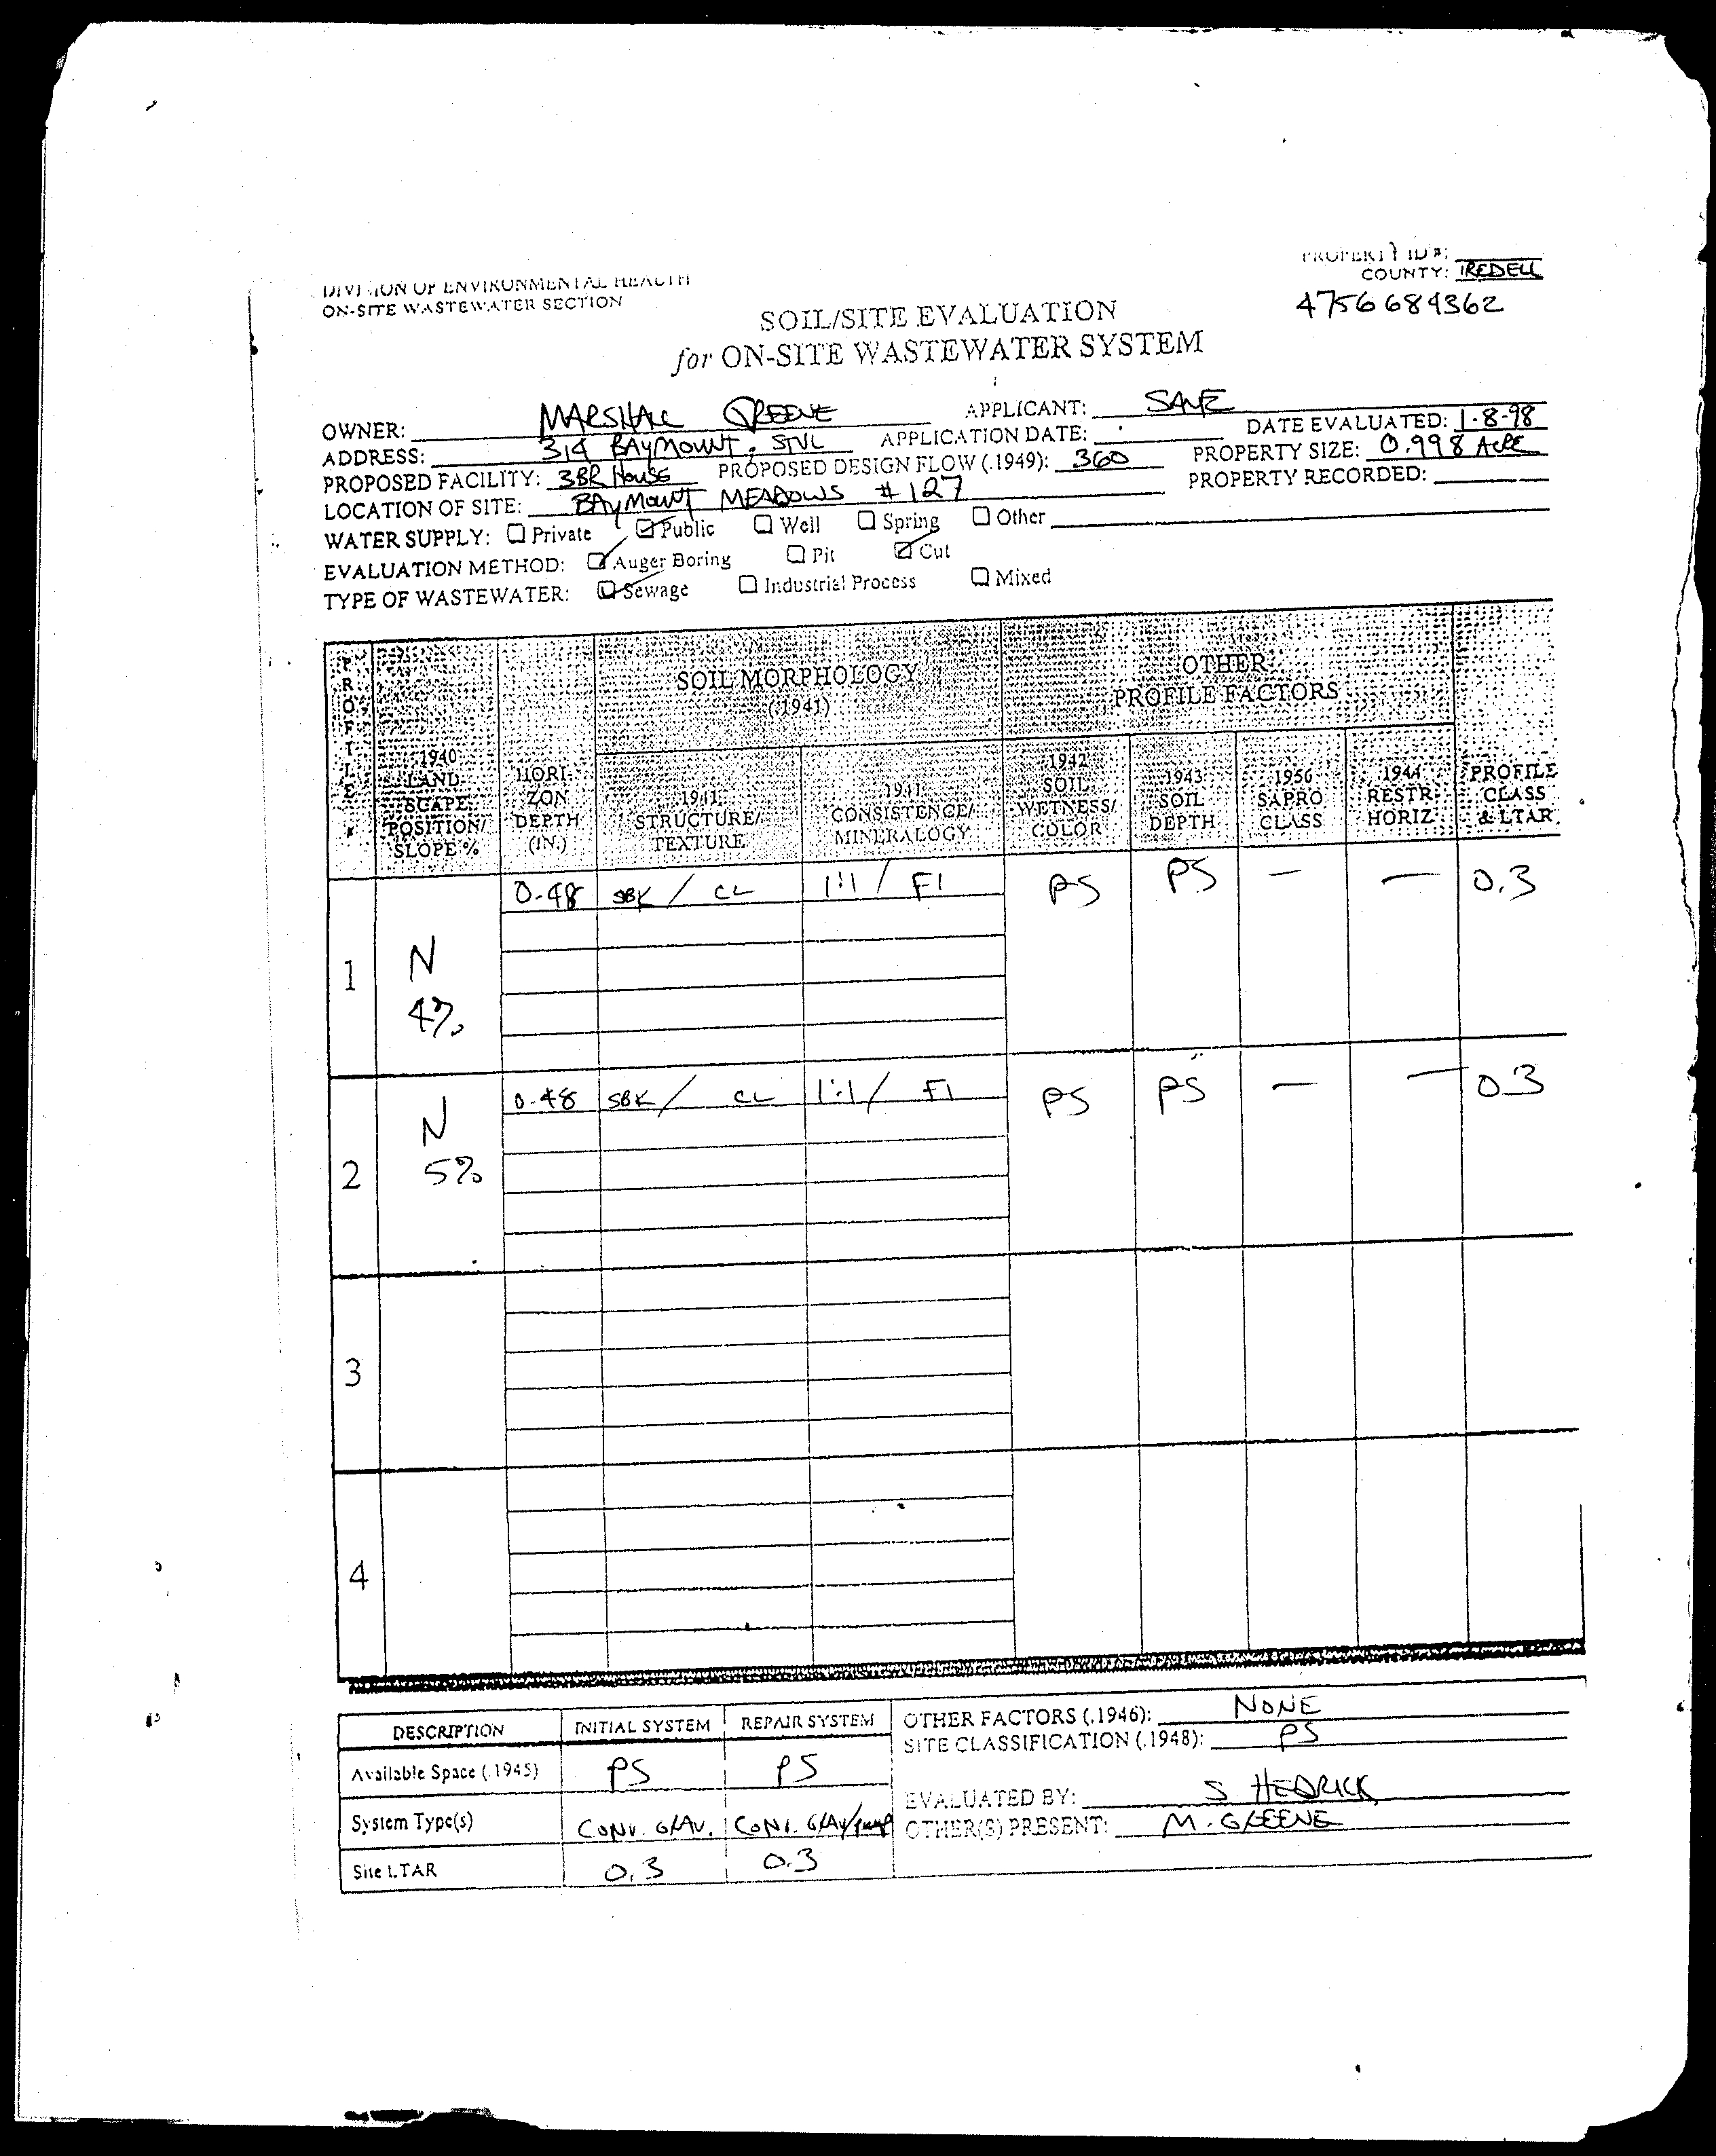 DIVISION OF ENVIRONMENTAL HEALTH
ON-SITE WASTEWATER SECTION
PROPERTY ID #:
COUNTY: IREDELL
4756684362
SOIL/SITE EVALUATION
for ON-SITE WASTEWATER SYSTEM
OWNER: MARSHALL GREENE APPLICANT: SAME
ADDRESS: 314 BAYMOUNT, STVL APPLICATION DATE: DATE EVALUATED: 1-8-98
PROPOSED FACILITY: 3BR HOUSE PROPOSED DESIGN FLOW (.1949): 360 PROPERTY SIZE: 0.998 ACRE
LOCATION OF SITE: BAYMOUNT MEADOWS #127 PROPERTY RECORDED:
WATER SUPPLY: Private Public Well Spring Other
EVALUATION METHOD: Auger Boring Pit Cut
TYPE OF WASTEWATER: Sewage Industrial Process Mixed
PROFILE #
.1940 LANDSCAPE POSITION/ SLOPE %
HORIZON DEPTH (IN.)
SOIL MORPHOLOGY (.1941)
.1941 STRUCTURE/ TEXTURE
.1941 CONSISTENCE/ MINERALOGY
OTHER PROFILE FACTORS
.1942 SOIL WETNESS/ COLOR
.1943 SOIL DEPTH
.1956 SAPRO CLASS
.1944 RESTR HORIZ
PROFILE CLASS & LTAR
1 N 4% 0-48 SBK / CL 1:1 / FI PS PS — — 0.3
2 N 5% 0-48 SBK / CL 1:1 / FI PS PS — — 0.3
3
4
DESCRIPTION INITIAL SYSTEM REPAIR SYSTEM
Available Space (.1945) PS PS
System Type(s) CONV. GRAV. CONV. GRAV/PUMP
Site LTAR 0.3 0.3
OTHER FACTORS (.1946): NONE
SITE CLASSIFICATION (.1948): PS
EVALUATED BY: S. HEDRICK
OTHER(S) PRESENT: M. GREENE